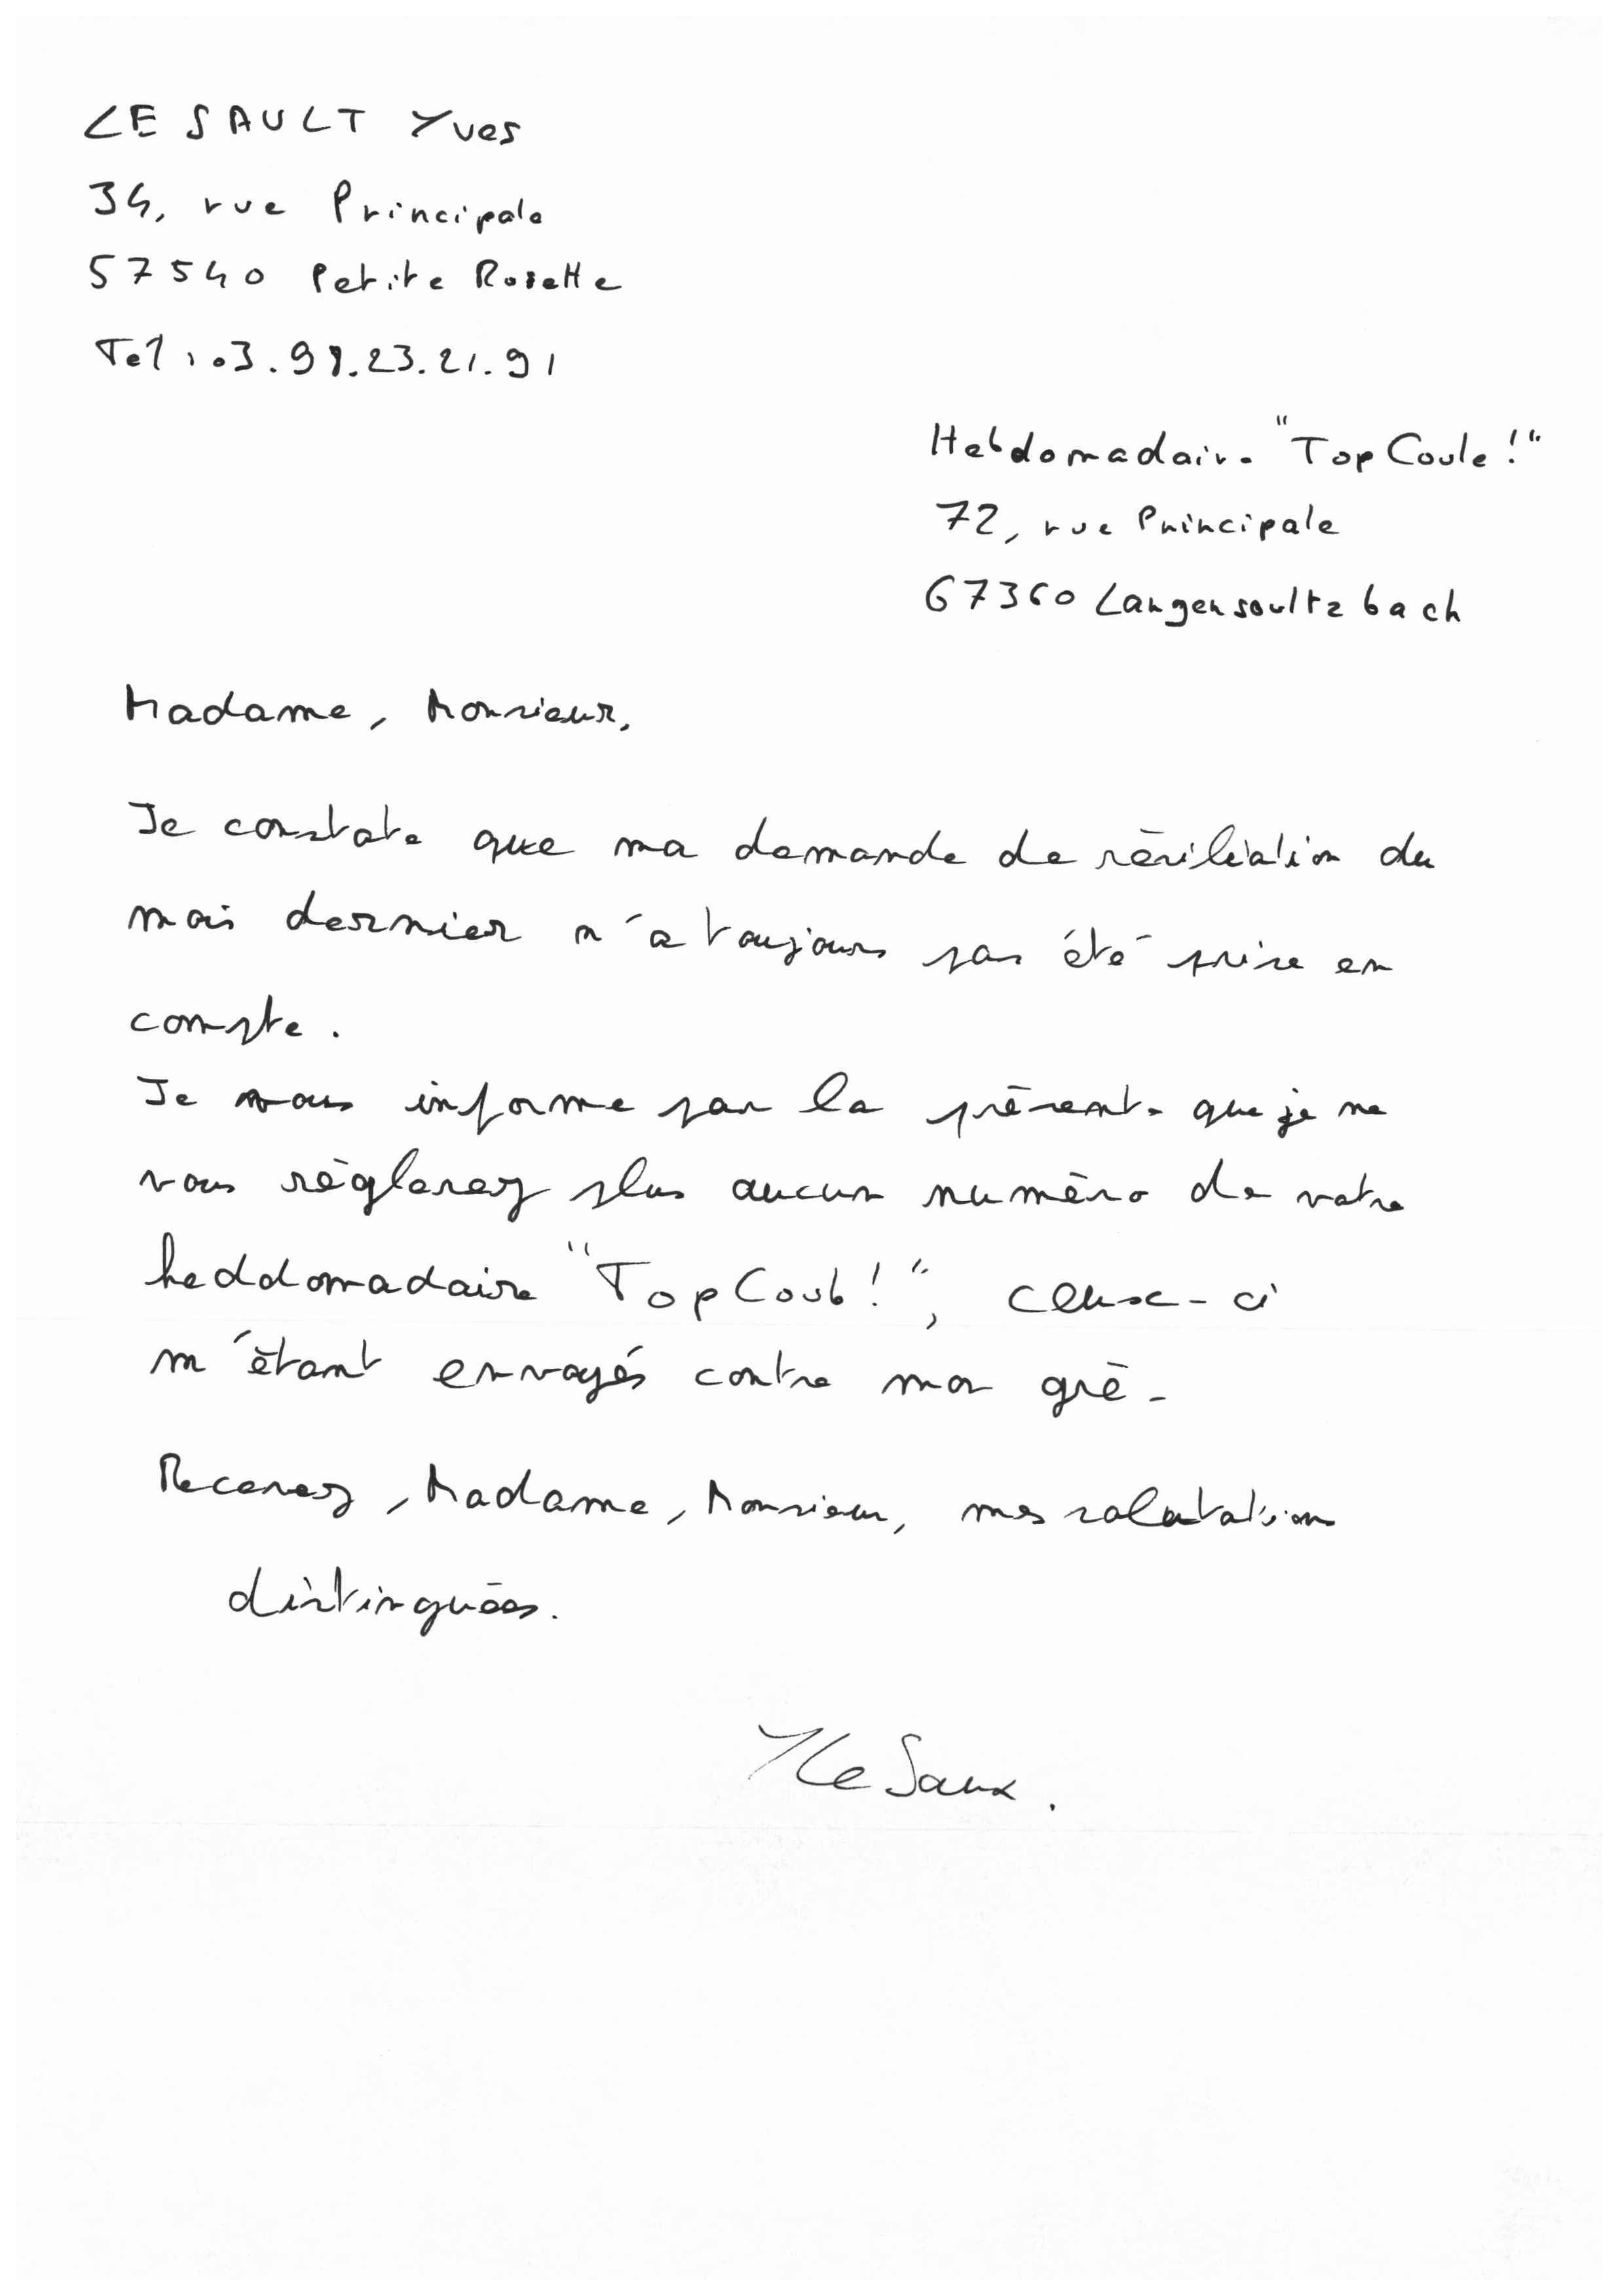 LE SAULT Yves
34, rue Principale
57540 Petite Roselle
Tel : 03.98.23.21.91
Hebdomadaire "Top Coule !"
72, rue Principale
67360 Langensoultzbach
Madame, Monsieur,
Je constate que ma demande de résiliation du
mois dernier n'a toujours pas été prise en
compte.
Je vous informe par la présente que je ne
vous réglerez plus aucun numéro de votre
heddomadaire "Top Coule !", ceux-ci
m'étant envoyés contre mon gré.
Recevez, Madame, Monsieur, mes salutations
distinguées.
YLe Saux.